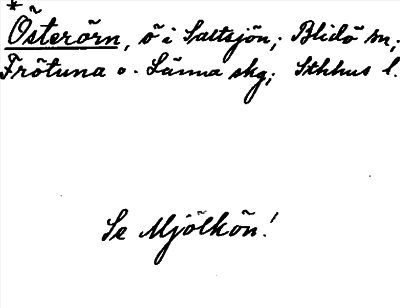 *
Österörn, ö i Saltsjön; Blidö sn;
Frötuna o. Länna skg; Sthhus l.
Se Mjölkön!